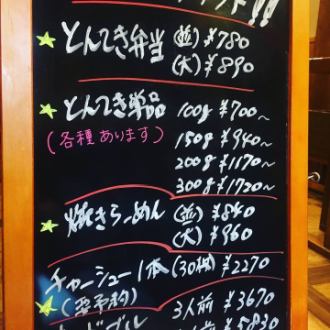 とんてき弁当 (並) ¥780
(大) ¥890
とんてき単品 100g ¥700~
(各種あります) 150g ¥940~
200g ¥1170~
300g ¥1720~
焼きらーめん (並) ¥840
(大) ¥960
チャーシュー1本 (30枚) ¥2270
(要予約) 3人前 ¥3670
オードブル ¥5830